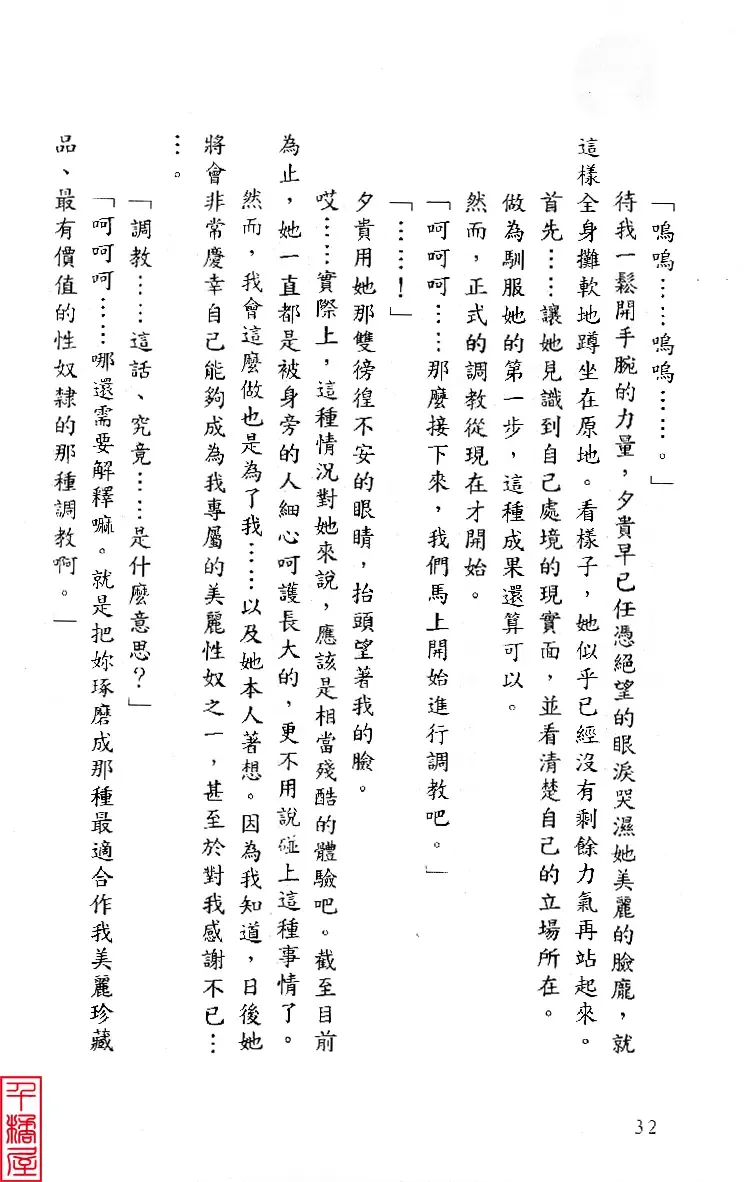 「嗚嗚……嗚嗚……。」
待我一鬆開手腕的力量，夕貴早已任憑絕望的眼淚哭濕她美麗的臉龐，就
這樣全身攤軟地蹲坐在原地。看樣子，她似乎已經沒有剩餘力氣再站起來。
首先……讓她見識到自己處境的現實面，並看清楚自己的立場所在。
做為馴服她的第一步，這種成果還算可以。
然而，正式的調教從現在才開始。
「呵呵呵……那麼接下來，我們馬上開始進行調教吧。」
「……！」
夕貴用她那雙徬徨不安的眼睛，抬頭望著我的臉。
哎……實際上，這種情況對她來說，應該是相當殘酷的體驗吧。截至目前
為止，她一直都是被身旁的人細心呵護長大的，更不用說碰上這種事情了。
然而，我會這麼做也是為了我……以及她本人著想。因為我知道，日後她
將會非常慶幸自己能夠成為我專屬的美麗性奴之一，甚至於對我感謝不已…
…。
「調教……這話、究竟……是什麼意思？」
「呵呵呵……哪還需要解釋嘛。就是把妳琢磨成那種最適合作我美麗珍藏
品、最有價值的性奴隸的那種調教啊。」
32